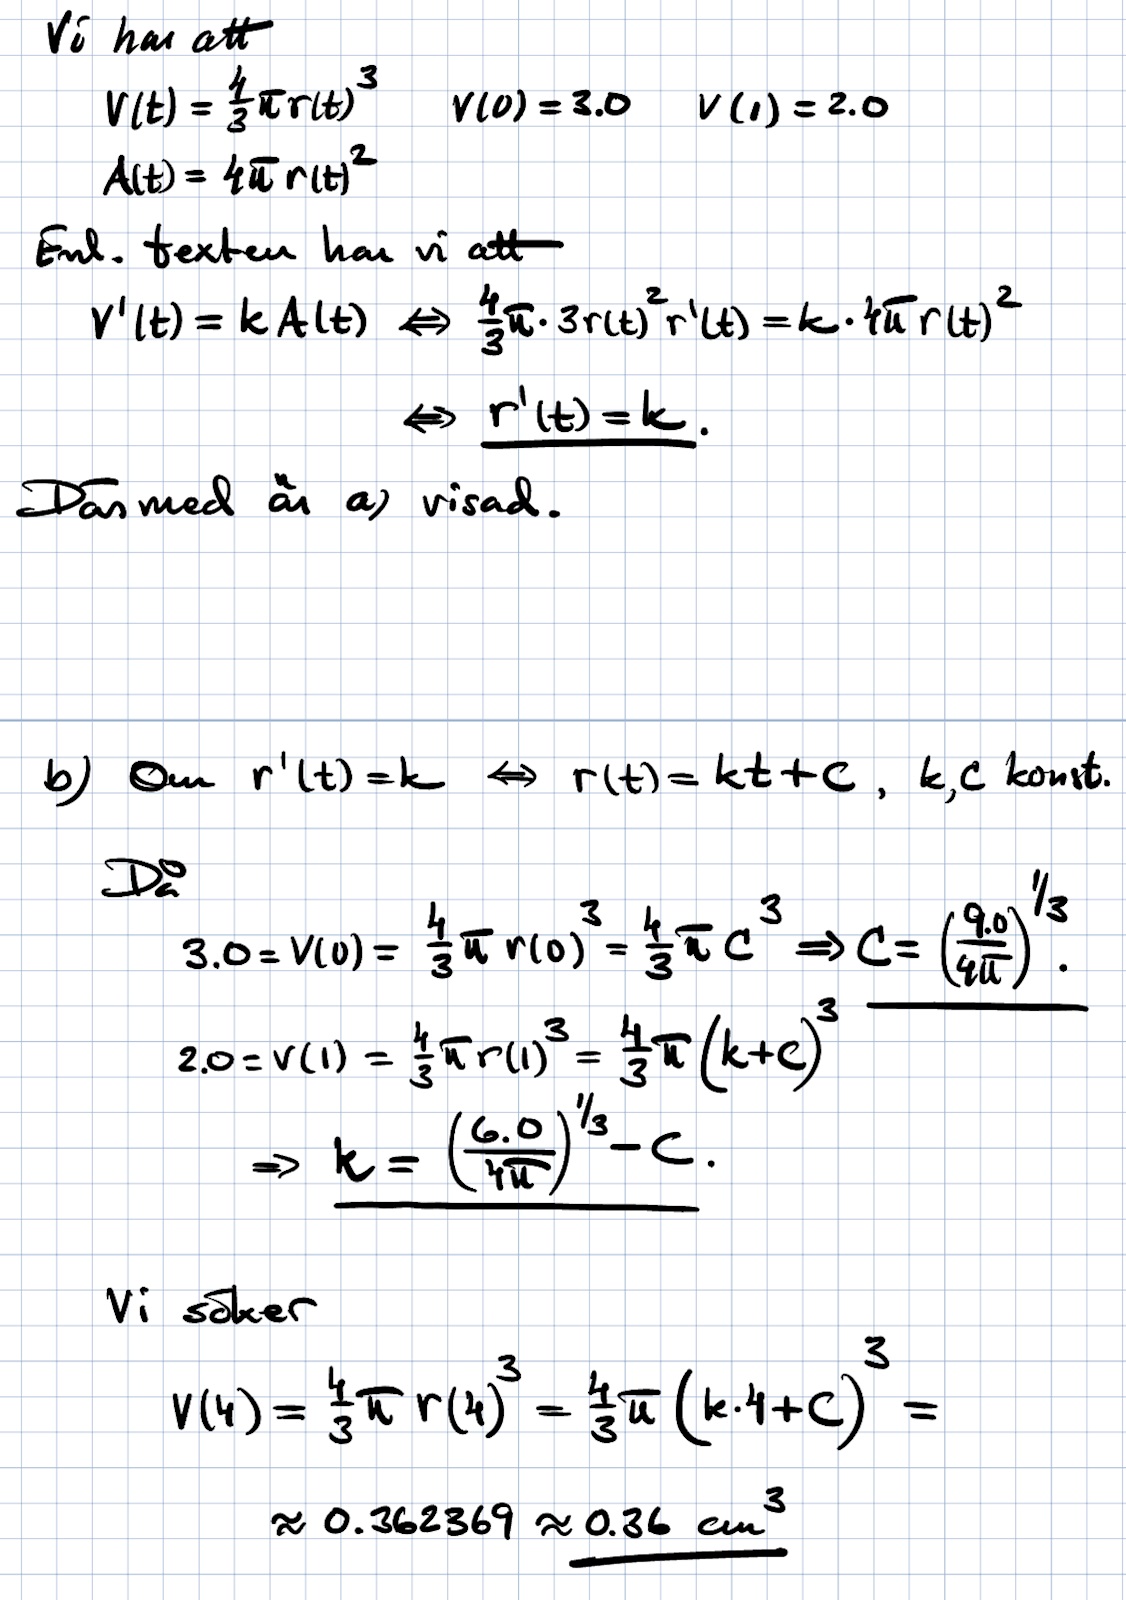 Vi har att
V(t) = 4/3 π r(t)^3   V(0) = 3.0   V(1) = 2.0
A(t) = 4π r(t)^2
Enl. texten har vi att
V'(t) = k A(t) ⇔ 4/3 π · 3r(t)^2 r'(t) = k · 4π r(t)^2
⇔ r'(t) = k.
Därmed är a) visad.
b) Om r'(t) = k ⇔ r(t) = kt + C, k, C konst.
Då
3.0 = V(0) = 4/3 π r(0)^3 = 4/3 π C^3 ⇒ C = (9.0/4π)^1/3.
2.0 = V(1) = 4/3 π r(1)^3 = 4/3 π (k+C)^3
⇒ k = (6.0/4π)^1/3 − C.
Vi söker
V(4) = 4/3 π r(4)^3 = 4/3 π (k·4+C)^3 =
≈ 0.362369 ≈ 0.36 cm^3